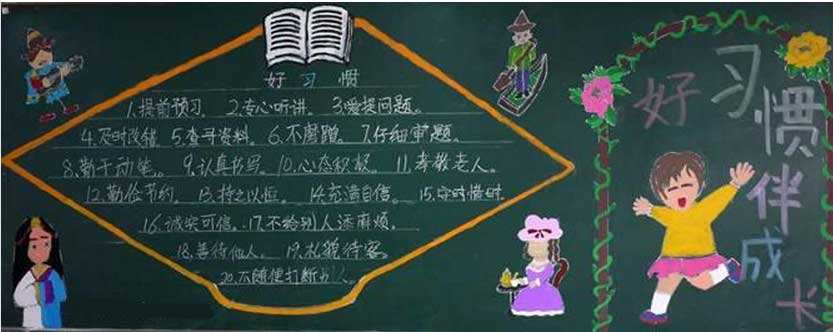 好习惯
1.提前预习。 2.专心听讲。 3.爱提问题。
4.及时改错。 5.查寻资料。 6.不磨蹭。 7.仔细审题。
8.勤于动笔。 9.认真书写。 10.心态积极。 11.孝敬老人。
12.勤俭节约。 13.持之以恒。 14.充满自信。 15.守时惜时。
16.诚实可信。 17.不给别人添麻烦。
18.善待他人。 19.礼貌待客。
20.不随便打断别人。
好习惯伴成长